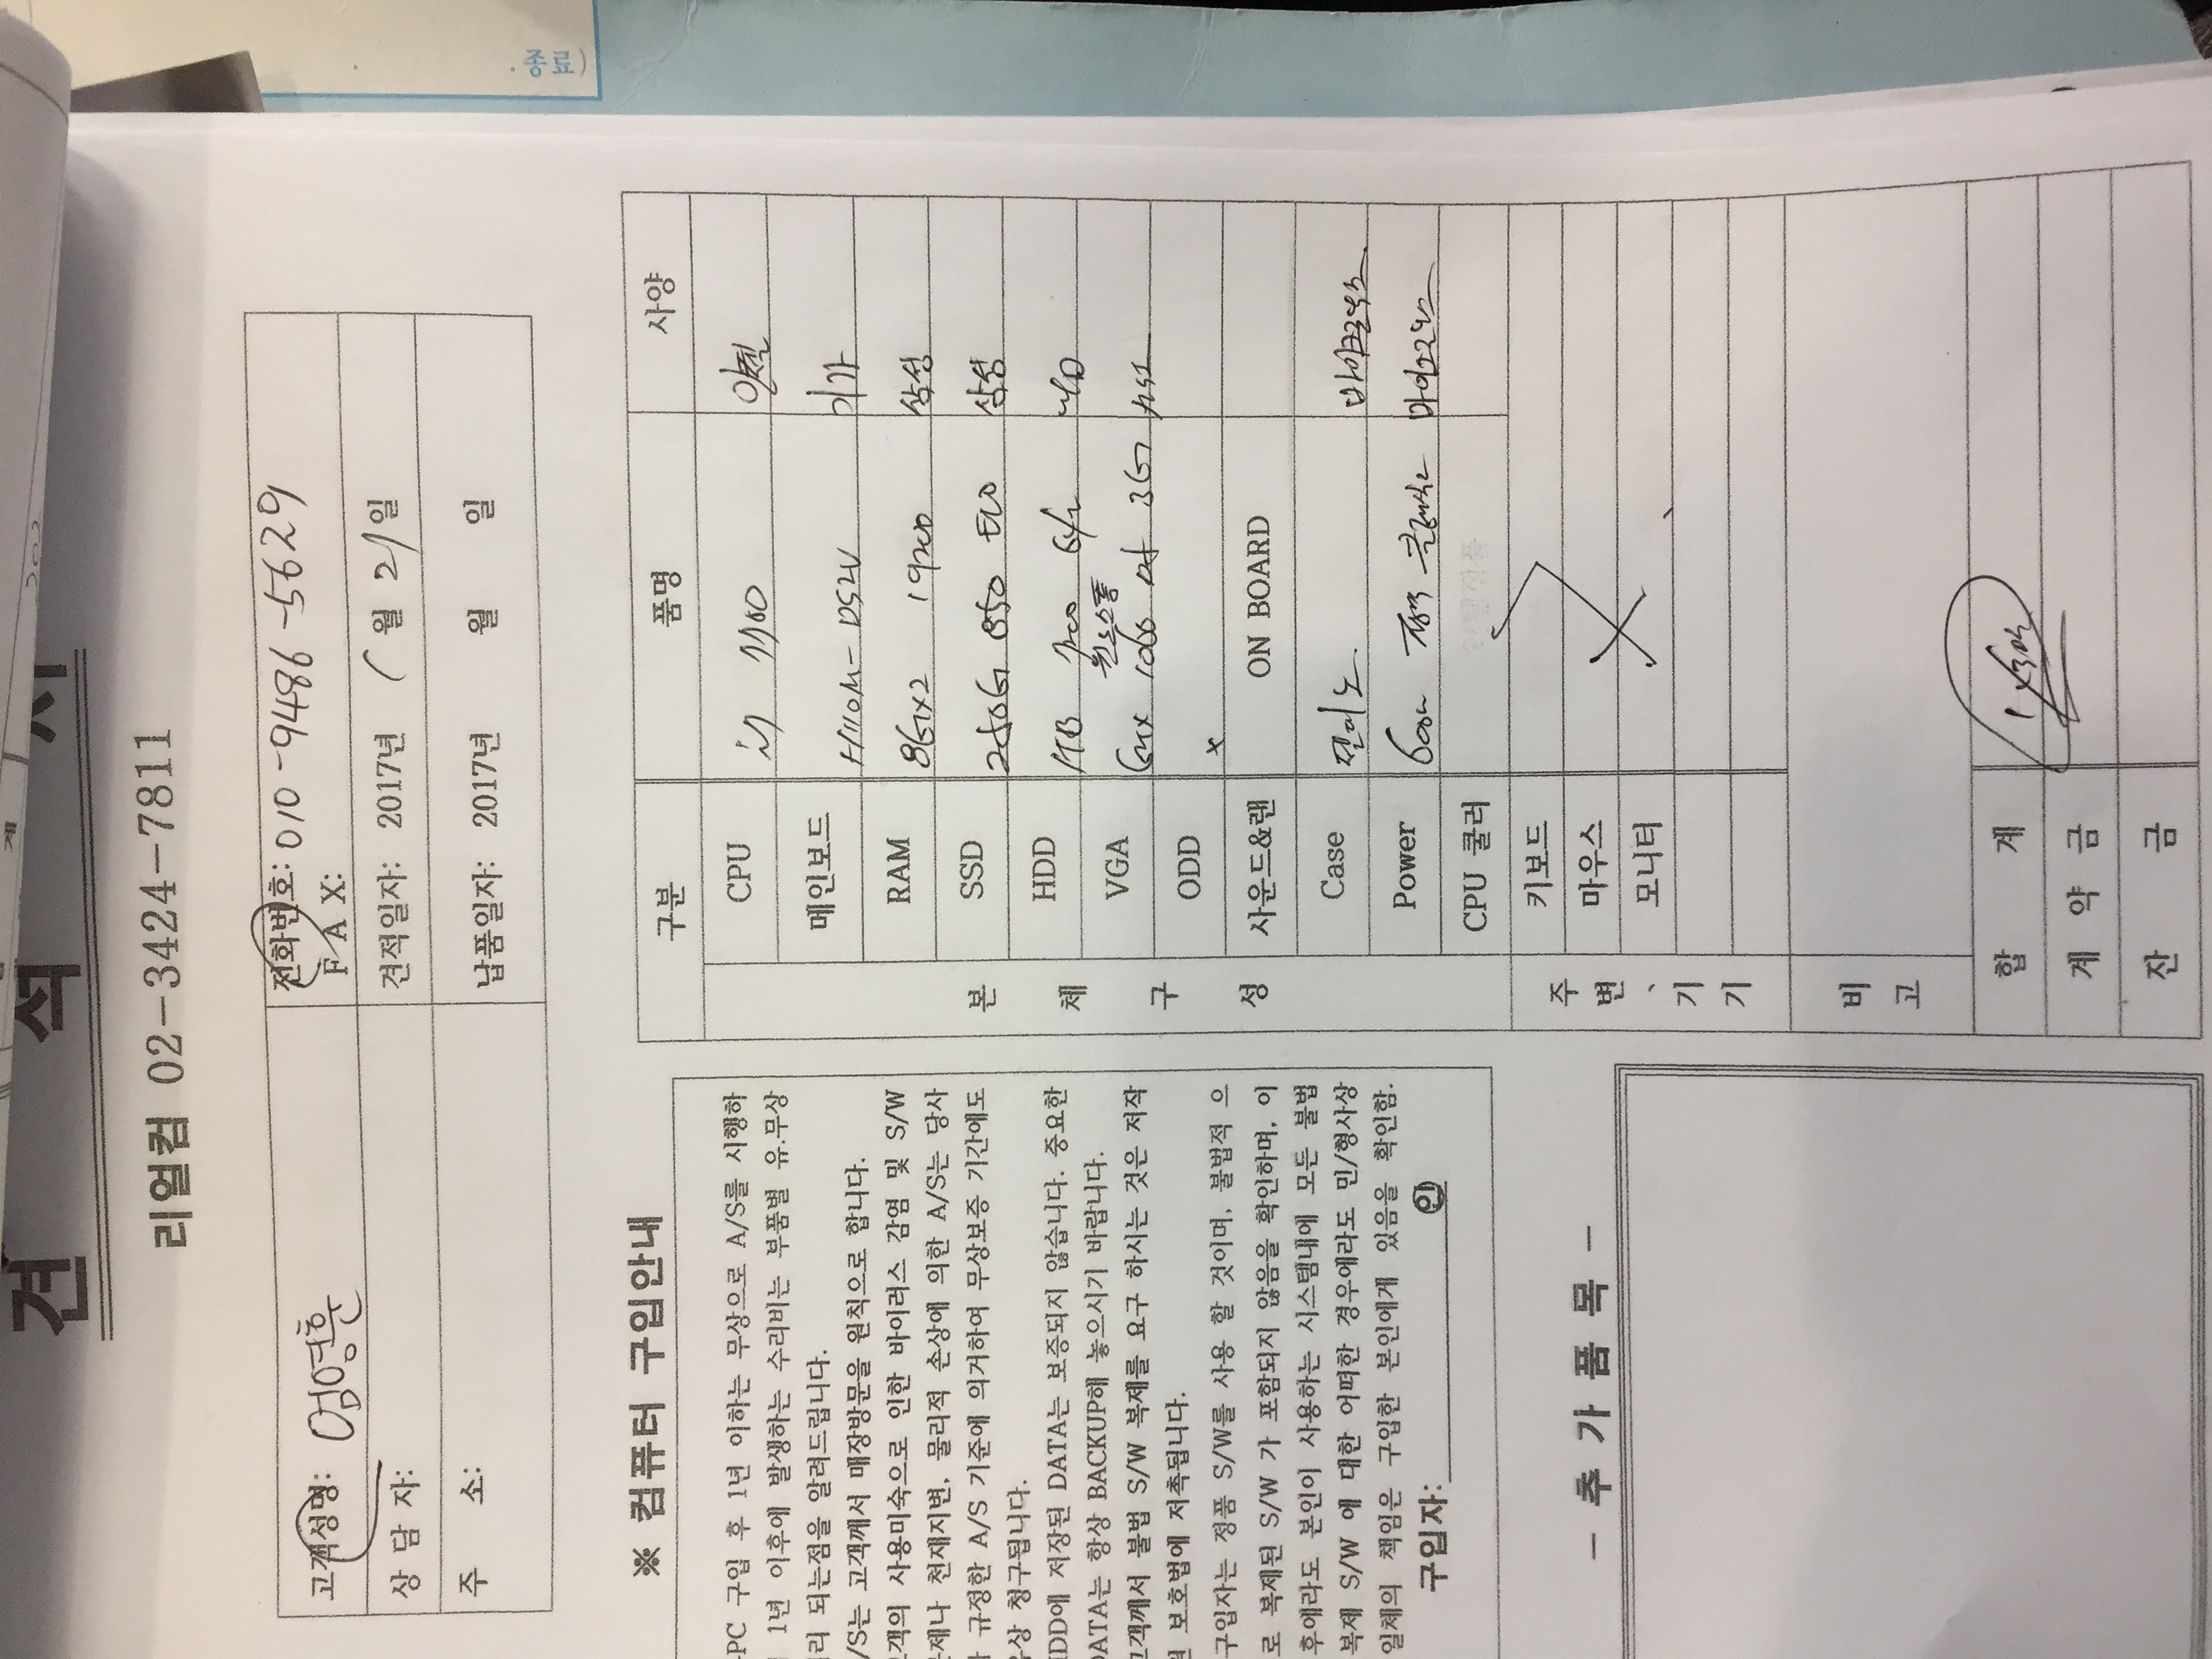 견 적
리얼컴 02-3424-7811
고객성명: 엄영훈
전화번호: 010-9486-5629
F A X:
상 담 자:
견적일자: 2017년 1월 21일
주 소:
납품일자: 2017년 월 일
※ 컴퓨터 구입안내
PC 구입 후 1년 이하는 무상으로 A/S를 시행하
1년 이후에 발생하는 수리비는 부품별 유.무상
리 되는점을 알려드립니다.
/S는 고객께서 매장방문을 원칙으로 합니다.
객의 사용미숙으로 인한 바이러스 감염 및 S/W
제나 천재지변, 물리적 손상에 의한 A/S는 당사
규정한 A/S 기준에 의거하여 무상보증 기간에도
상 청구됩니다.
HDD에 저장된 DATA는 보증되지 않습니다. 중요한
DATA는 항상 BACKUP해 놓으시기 바랍니다.
고객께서 불법 S/W 복제를 요구 하시는 것은 저작
보호법에 저촉됩니다.
구입자는 정품 S/W를 사용 할 것이며, 불법적 으
로 복제된 S/W 가 포함되지 않음을 확인하며, 이
후에라도 본인이 사용하는 시스템내에 모든 불법
복제 S/W 에 대한 어떠한 경우에라도 민/형사상
일체의 책임은 구입한 본인에게 있음을 확인함.
구입자: 인
- 추 가 품 목 -
구분 품명 사양
본 체 구 성
CPU i7 7700 인텔
메인보드 H110M-DS2V 기가
RAM 8G×2 19200 삼성
SSD 250G 850 EVO 삼성
HDD 1TB 7200 64M WD
VGA GTX 1060 윈드스톰 3G MSI
ODD ×
사운드&랜 ON BOARD
Case
Power 600W 정격 마이크로닉스
CPU 쿨러
주 변 기 기
키보드
마우스
모니터
비 고
합 계
계 약 금
잔 금